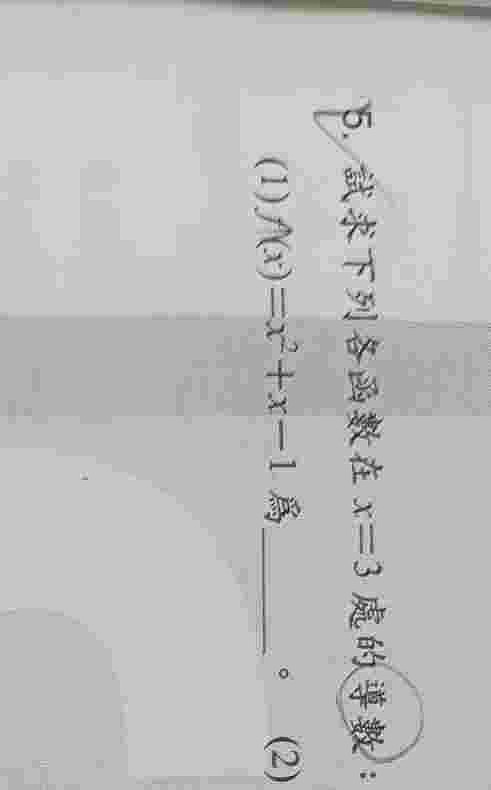 5. 試求下列各函數在 x=3 處的導數：
(1) f(x)=x²+x−1 為______。 (2)